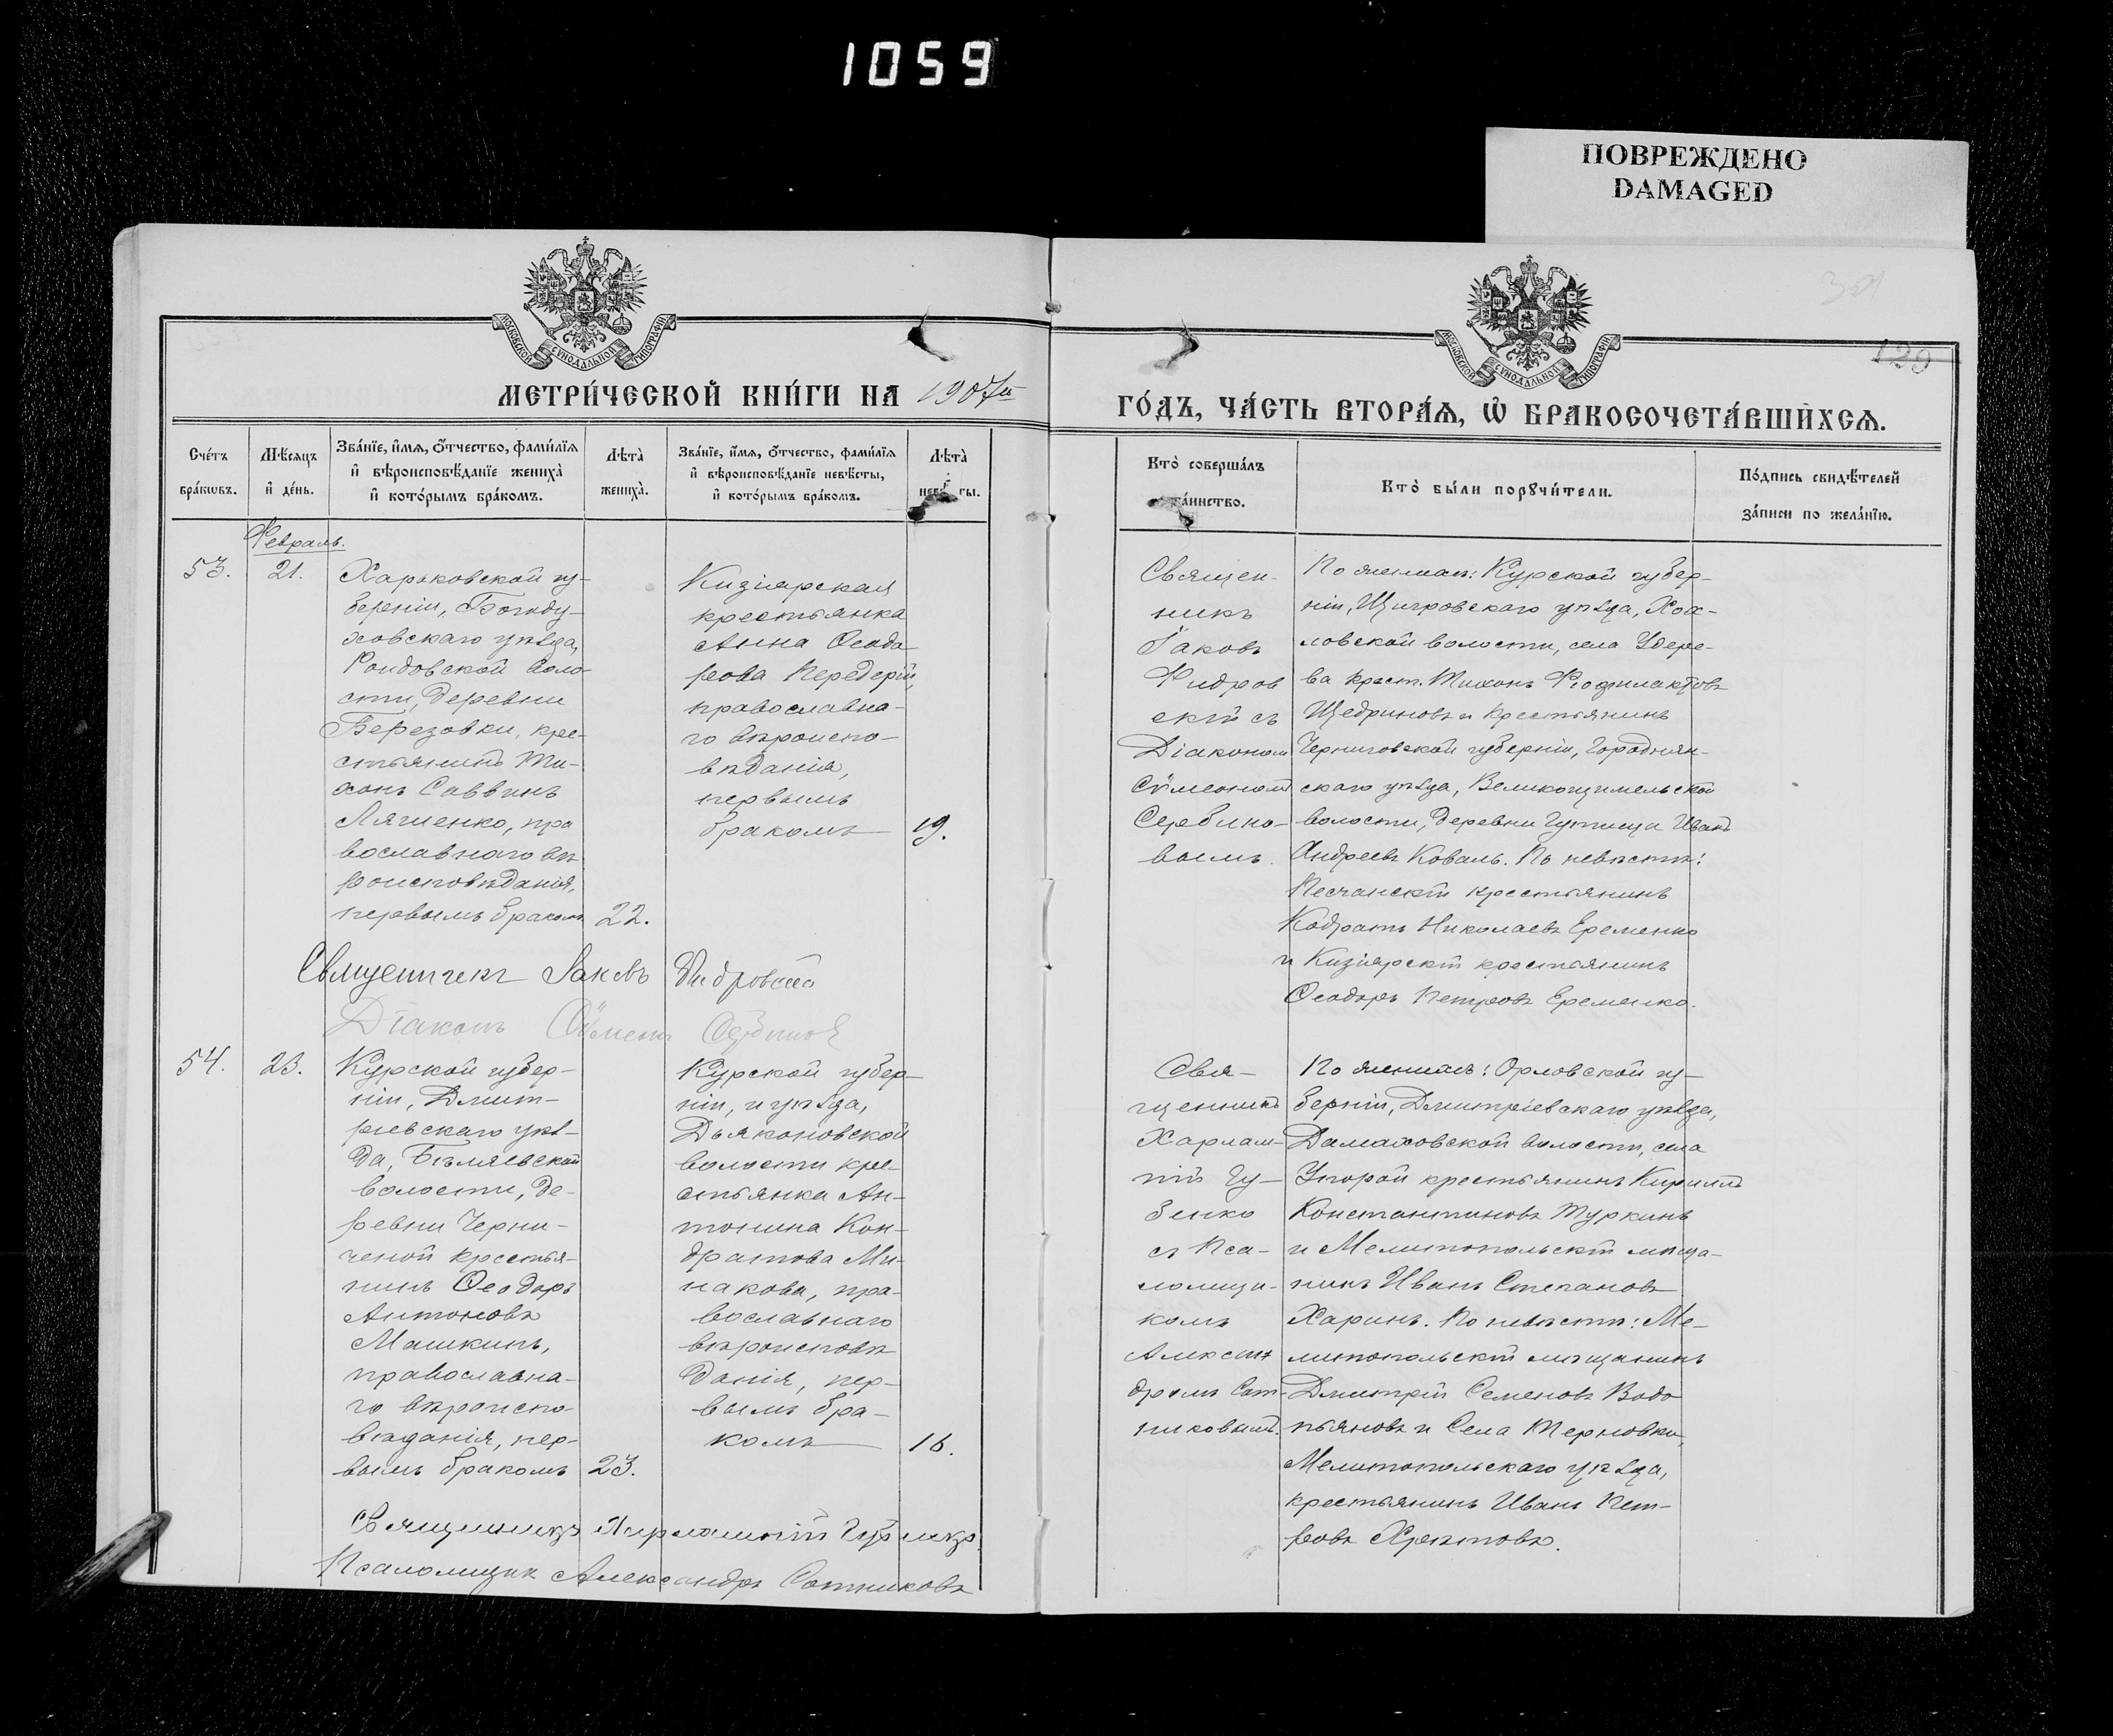 1059
ПОВРЕЖДЕНО
DAMAGED
МОСКОВСКОЙ СѴНОДАЛЬНОЙ ТИПОГРАФІИ
МОСКОВСКОЙ СѴНОДАЛЬНОЙ ТИПОГРАФІИ
139
МЕТРИ́ЧЕСКОЙ КНИ́ГИ НА 1907й
ГО́ДЪ, ЧА́СТЬ ВТОРА́Ѧ, Ѡ҆ БРАКОСОЧЕТА́ВШИХСѦ.
Сче́тъ
бра́кѡвъ.
Мѣ́сяцъ
и҆ де́нь.
Зва́нїе, и҆́мѧ, ѻ҆́тчество, фами́лїѧ
и҆ вѣроисповѣ́данїе жениха̀
и҆ кото́рымъ бра́комъ.
Лѣта̀
жениха̀.
Зва́нїе, и҆́мѧ, ѻ҆́тчество, фами́лїѧ
и҆ вѣроисповѣ́данїе невѣ́сты,
и҆ кото́рымъ бра́комъ.
Лѣта̀
нев ты.
Кто̀ соверша́лъ
та́инство.
Кто̀ бы́ли порꙋчи́тели.
По́дпись свидѣ́телей
за́писи по жела́нїю.
Февраль.
53.
21.
Харьковской гу-
берніи, Богоду-
ховскаго уѣзда,
воло-
сти, деревни
Березовки, кре-
стьянинъ Ти-
хонъ Саввинъ
Лягиенко, пра
вославнаго вѣ
роисповѣданія,
первымъ бракомъ
22.
Кизіярская
крестьянка
Анна Ѳеодо
рова Передерій,
православна-
го вѣроиспо-
вѣданія,
первымъ
бракомъ
19.
Священ-
никъ
Іаковъ
Фидров
скій съ
Діакономъ
Сѵмеономъ
Сербино-
вымъ.
По женихѣ: Курской губер-
ніи, Щигровскаго уѣзда, Хох-
ловской волости, села Удере-
ва крест. Тихонъ Феофилактовъ
Щедриновъ и крестьянинъ
Черниговской губерніи, Городнян-
скаго уѣзда, Великощимельской
волости, деревни Гутища Иванъ
Андреевъ Коваль. По невѣстѣ:
Песчанскій крестьянинъ
Кодратъ Николаевъ Еременко
и Кизіярскій крестьянинъ
Ѳеодоръ Петровъ Еременко.
Священникъ Іаковъ Фидровскій
Діаконъ Сѵмеонъ Сербиновъ
54.
23.
Курской губер-
ніи, Дмит-
ріевскаго уѣз-
да, Бѣляевской
волости, де-
ревни Черни-
ченой крестья-
нинъ Ѳеодоръ
Антоновъ
Машкинъ,
православна-
го вѣроиспо-
вѣданія, пер-
вымъ бракомъ
23.
Курской губер-
ніи, и уѣзда,
Дьяконовской
волости кре-
стьянка Ан-
тонина Кон-
дратова Ми-
накова, пра-
вославнаго
вѣроисповѣ
данія, пер-
вымъ бра-
комъ
16.
Свя-
щенникъ
Харлам-
пій Гу-
бенко
съ Пса-
ломщи-
комъ
Алексан
дромъ Сот-
никовымъ.
По женихѣ: Орловской гу-
берніи, Дмитріевскаго уѣзда,
Домаховской волости, села
Упорой крестьянинъ Кириллъ
Константиновъ Туркинъ
и Мелитопольскій мѣща-
нинъ Иванъ Степановъ
Харинъ. По невѣстѣ: Ме-
литопольскій мѣщанинъ
Дмитрій Семеновъ Водо
пьяновъ и Села Терновки,
Мелитопольскаго уѣзда,
крестьянинъ Иванъ Пет-
ровъ Хрѣптовъ.
Священникъ Харлампій Губенко
Псаломщикъ Александръ Сотниковъ